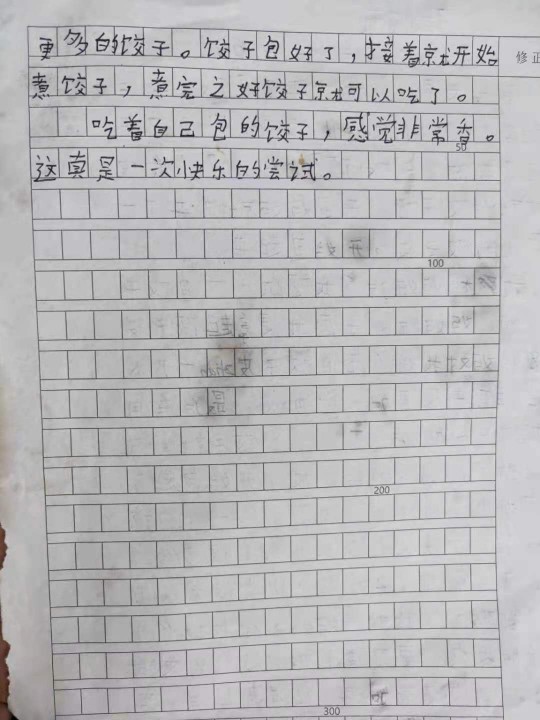 更多的饺子。饺子包好了，接着就开始
修正
煮饺子，煮完之好饺子就可以吃了。
吃着自己包的饺子，感觉非常香。
50
这真是一次快乐的尝试。
100
200
300